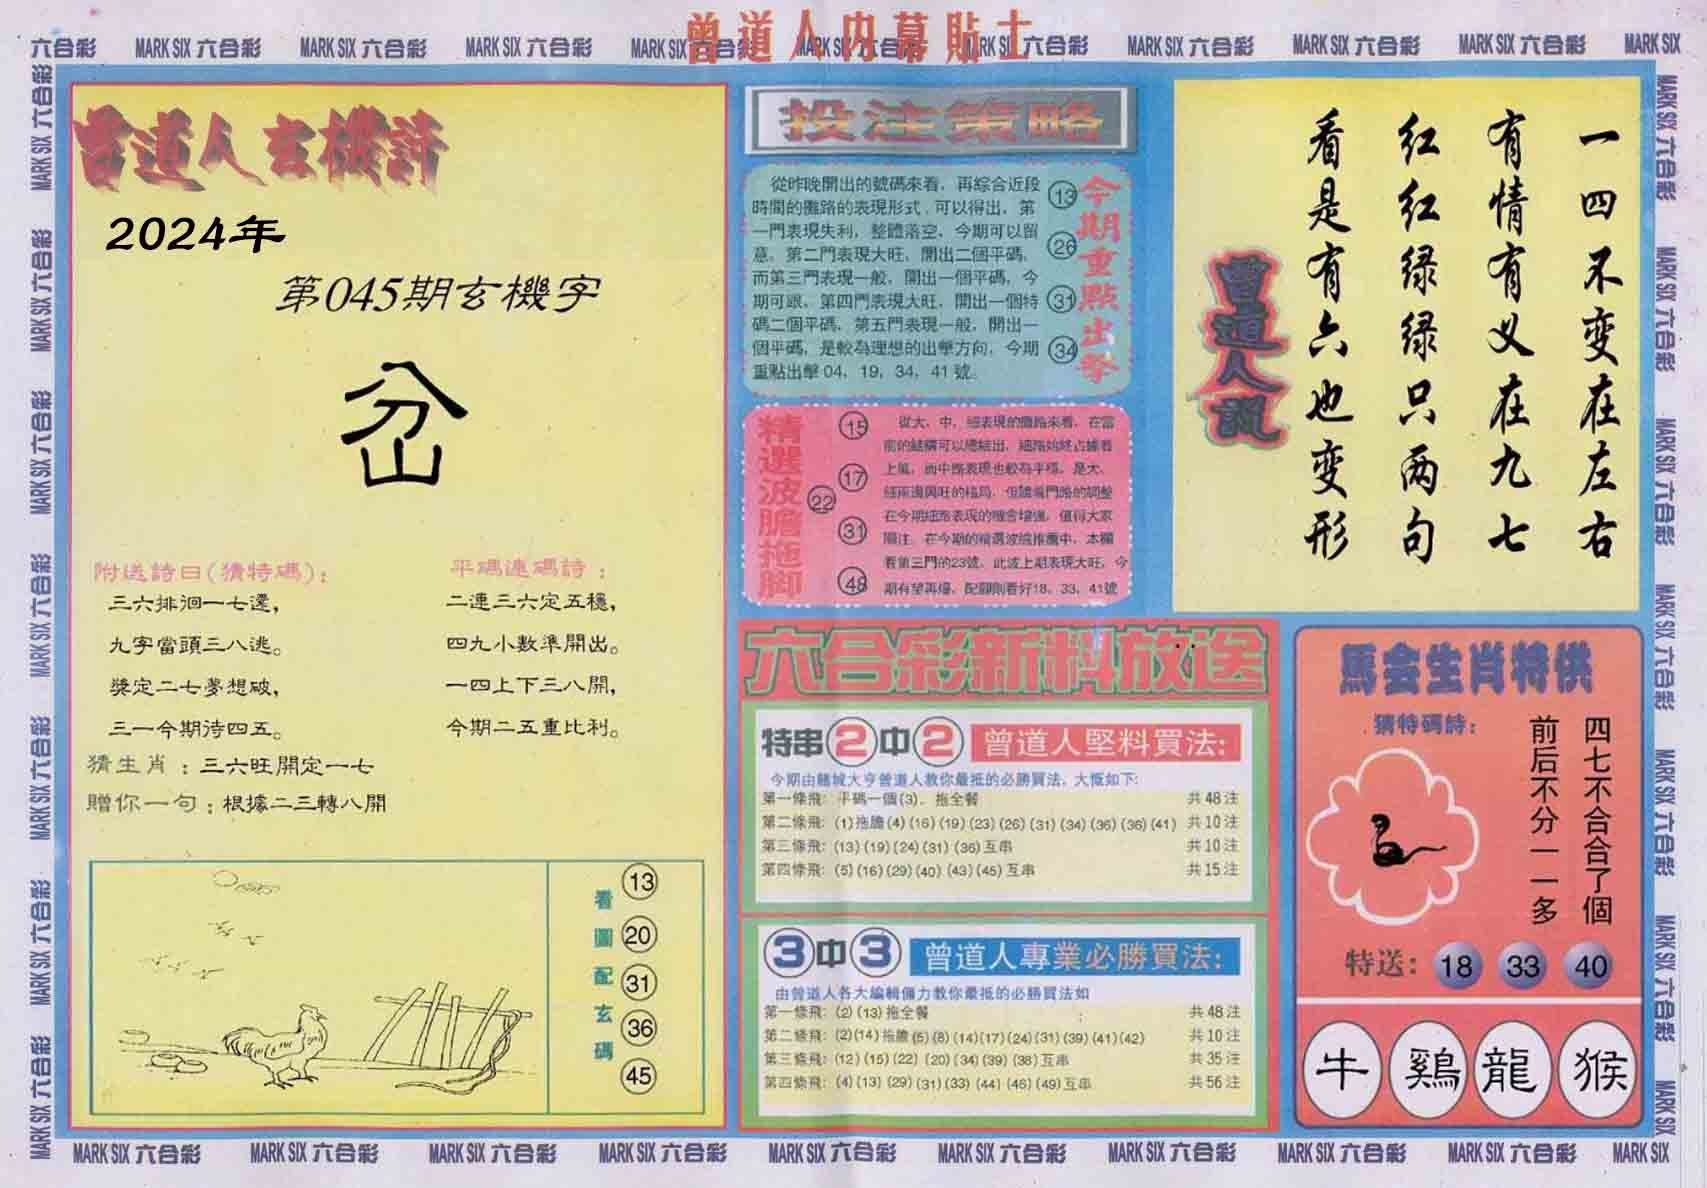 曾道人内幕貼士
六合彩 MARK SIX 六合彩 MARK SIX 六合彩 MARK SIX 六合彩 MARK SIX 六合彩 MARK SIX 六合彩 MARK SIX 六合彩 MARK SIX 六合彩 MARK SIX 六合彩 MARK SIX 六合彩 MARK SIX
曾道人玄機詩
2024年
第045期玄機字
岔
附送詩曰(猜特碼)：
三六排徊一七還，
九字當頭三八逃。
獎定二七夢想破，
三一今期待四五。
平碼連碼詩：
二連三六定五穩，
四九小數準開出。
一四上下三八開，
今期二五重比利。
猜生肖：三六旺開定一七
贈你一句：根據二三轉八開
看圖配玄碼
13
20
31
36
45
投注策略
從昨晚開出的號碼來看，再綜合近段
時間的攤路的表現形式，可以得出，第
一門表現失利，整體落空，今期可以留
意，第二門表現大旺，開出二個平碼，
而第三門表現一般，開出一個平碼，今
期可跟，第四門表現大旺，開出一個特
碼二個平碼，第五門表現一般，開出一
個平碼，是較為理想的出擊方向，今期
重點出擊 04，19，34，41號。
13
26
31
34
今期重點出擊
精選波膽拖脚
15
17
22
31
48
從大、中、細表現的攤路來看，在當
前的結構可以總結出，細路始終占據着
上風，而中路表現也較為平穩，是大、
細兩邊興旺的格局，但隨着門路的調整
在今期細路表現的機會增強，值得大家
關注，在今期的精選波膽推薦中，本欄
看第三門的23號，此波上期表現大旺，今
期有望再爆，配脚則看好18，33，41號
曾道人説
一四不变在左右
有情有义在九七
红红绿绿只两句
看是有六也变形
六合彩新料放送
特串2中2 曾道人堅料買法:
今期由賭城大亨曾道人教你最抵的必勝買法，大慨如下:
第一條飛: 平碼一個(3)，拖全餐 共48注
第二條飛: (1)拖膽(4)(16)(19)(23)(26)(31)(34)(36)(36)(41) 共10注
第三條飛: (13)(19)(24)(31)(36)互串 共10注
第四條飛: (5)(16)(29)(40)(43)(45)互串 共15注
3中3 曾道人專業必勝買法:
由曾道人各大編輯傭力教你最抵的必勝買法如
第一條飛: (2)(13)拖全餐 共48注
第二條飛: (2)(14)拖膽(5)(8)(14)(17)(24)(31)(39)(41)(42) 共10注
第三條飛: (12)(15)(22)(20)(34)(39)(38)互串 共35注
第四條飛: (4)(13)(29)(31)(33)(44)(46)(49)互串 共56注
馬会生肖特供
猜特碼詩:
四七不合合了個
前后不分一一多
特送: 18 33 40
牛 鷄 龍 猴
MARK SIX 六合彩 MARK SIX 六合彩 MARK SIX 六合彩 MARK SIX 六合彩 MARK SIX 六合彩 MARK SIX 六合彩 MARK SIX 六合彩 MARK SIX 六合彩 MARK SIX 六合彩 MARK SIX